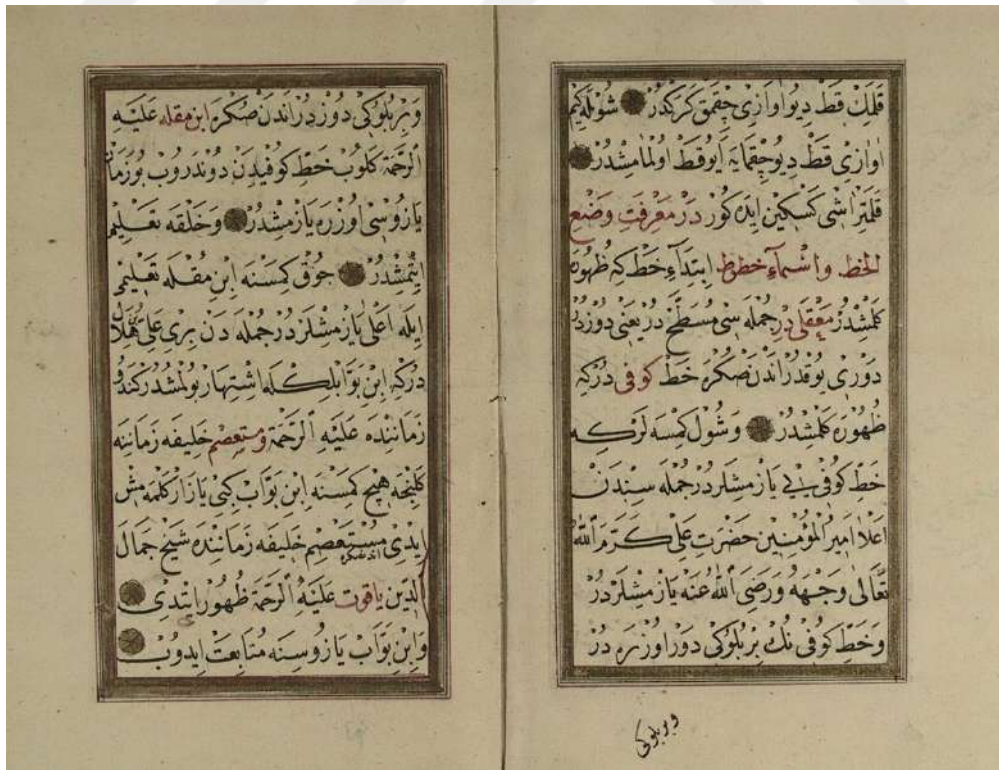 قلمك قط ديو اوازى چقمق كركدر شويله كيم
اوازى قط ديو چقمايه ايو قط اولمامشدر
قلمتراشى كسكين ايده كور در معرفت وضع
الخط و اسماء خطوط ابتداء خط كه ظهوره
كلمشدر معقلى در جمله سى مسطح در يعنى دوزدر
دورى يوقدر اندن صكره خط كوفى دركه
ظهوره كلمشدر و شول كمسه لركه
خط كوفى يى يازمشلردر جمله سندن
اعلا امير المؤمنين حضرت على كرم الله
تعالى وجهه ورضى الله عنه يازمشلردر
و خط كوفى نك بر بلوكى دور اوزره در
و بر بلوكى
و بر بلوكى دوزدر اندن صكره ابن مقله عليه
الرحمة كلوب خط كوفيدن دوندروب بو زمان
يازوسى اوزره يازمشدر و خلقه تعليم
ايتمشدر چوق كمسنه ابن مقله تعليمى
ايله اعلى يازمشلردر جمله دن برى على هلال
دركه ابن بواب ايله اشتهار بولمشدر كندو
زماننده عليه الرحمة و مستعصم خليفه زماننه
كلنجه هيچ كمسنه ابن بواب كبى يازاركلمه مش
ايدى مستعصم خليفه زماننده شيخ جمال
الدين ياقوت عليه الرحمة ظهور ايتدى
و ابن بواب يازوسنه متابعت ايدوب